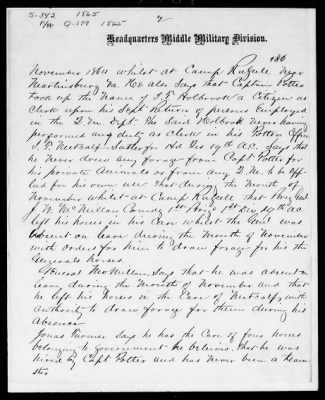 S-342 1865
P/W Q-179 1865
2
Headquarters Middle Military Division.
186
November 1864 whilst at Camp Russell near
Martinsburg Va. He also says that Captain Potter
took up the name of Holbrook a Citizen as
Clerk upon his Return of persons Employed
in the Q.M. Dept. The said Holbrook never having
performed any duty as Clerk in his Potters Office
J. F. Metcalf Sutler for Hd Qrs 19th A.C. says that
he never drew any forage from Capt Potter for
his private animals or from any Q.M.
for his own use that during the month of
November whilst at Camp Russell that Brig Genl
J. W. McMillan Comdg 1st Brig 1st Div 19th A.C.
left his horses in his Care whilst the Genl was
absent on leave during the month of November
with orders for him to draw forage for his the
Generals horses.
General McMillan, Says that he was absent on
leave during the month of November and that
he left his horses in the Care of Metcalf, with
Authority to draw forage for them during his
Absence
Jonas Turner Says he has the Care of four horses
belonging to government he believes. That he was
hired by Capt Potter and has never been a team
ster